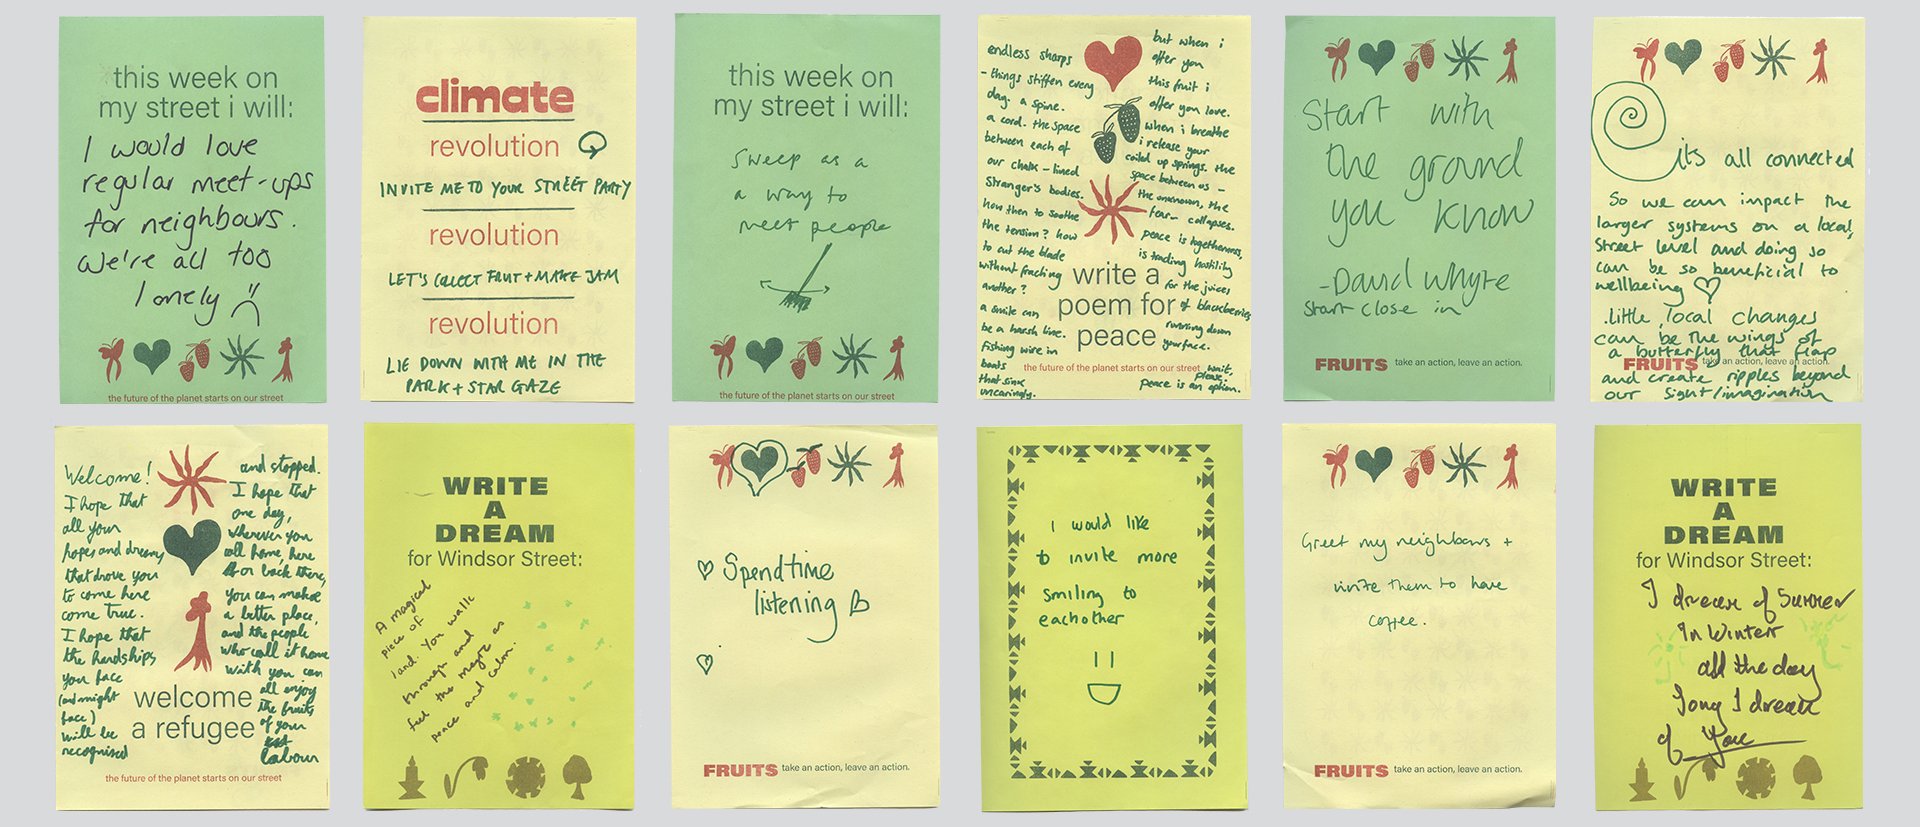 this week on
my street i will:
I would love
regular meet-ups
for neighbours.
We're all too
lonely
the future of the planet starts on our street
climate
revolution
INVITE ME TO YOUR STREET PARTY
revolution
LET'S COLLECT FRUIT + MAKE JAM
revolution
LIE DOWN WITH ME IN THE
PARK + STAR GAZE
this week on
my street i will:
Sweep as a
a way to
meet people
the future of the planet starts on our street
endless sharps
- things stiffen every
day. a spine.
a cord. the space
between each of
our chalk-lined
stranger's bodies.
how then to soothe
the tension? how
to cut the blade
without fracking
another?
a smile can
be a harsh line.
fishing wire in
boats
that sink
uncaringly.
but when i
offer you
this fruit i
offer you love.
when i breathe
i release your
coiled up springs. the
space between us -
the unknown, the
fear - collapses.
peace is togetherness,
is trading hostility
for the juices
of blackberries
running down
your face.
wait,
please,
peace is an option.
write a
poem for
peace
the future of the planet starts on our street
Start with
the ground
you know
- David Whyte
Start close in
FRUITS take an action, leave an action.
its all connected
So we can impact the
larger systems on a local,
street level and doing so
can be so beneficial to
wellbeing ♡
.little, local changes
can be the wings of
a butterfly that flap
and create ripples beyond
our sight/imagination
FRUITS take an action, leave an action.
Welcome!
I hope that
all your
hopes and dreams
that drove you
to come here
come true.
I hope that
the hardships
you face
(and might
face)
will be
recognised
and stopped.
I hope that
one day,
wherever you
call home, here
or back there,
you can make
a better place,
and the people
who call it home
with you can
all enjoy
the fruits
of your
labour
welcome
a refugee
the future of the planet starts on our street
WRITE
A
DREAM
for Windsor Street:
A magical
piece of
land. You walk
through and
feel the magic as
peace and calm.
♡ Spend time
listening
FRUITS take an action, leave an action.
I would like
to invite more
smiling to
eachother
Greet my neighbours +
invite them to have
coffee.
FRUITS take an action, leave an action.
WRITE
A
DREAM
for Windsor Street:
I dream of Summer
In Winter
all the day
long I dream
of you